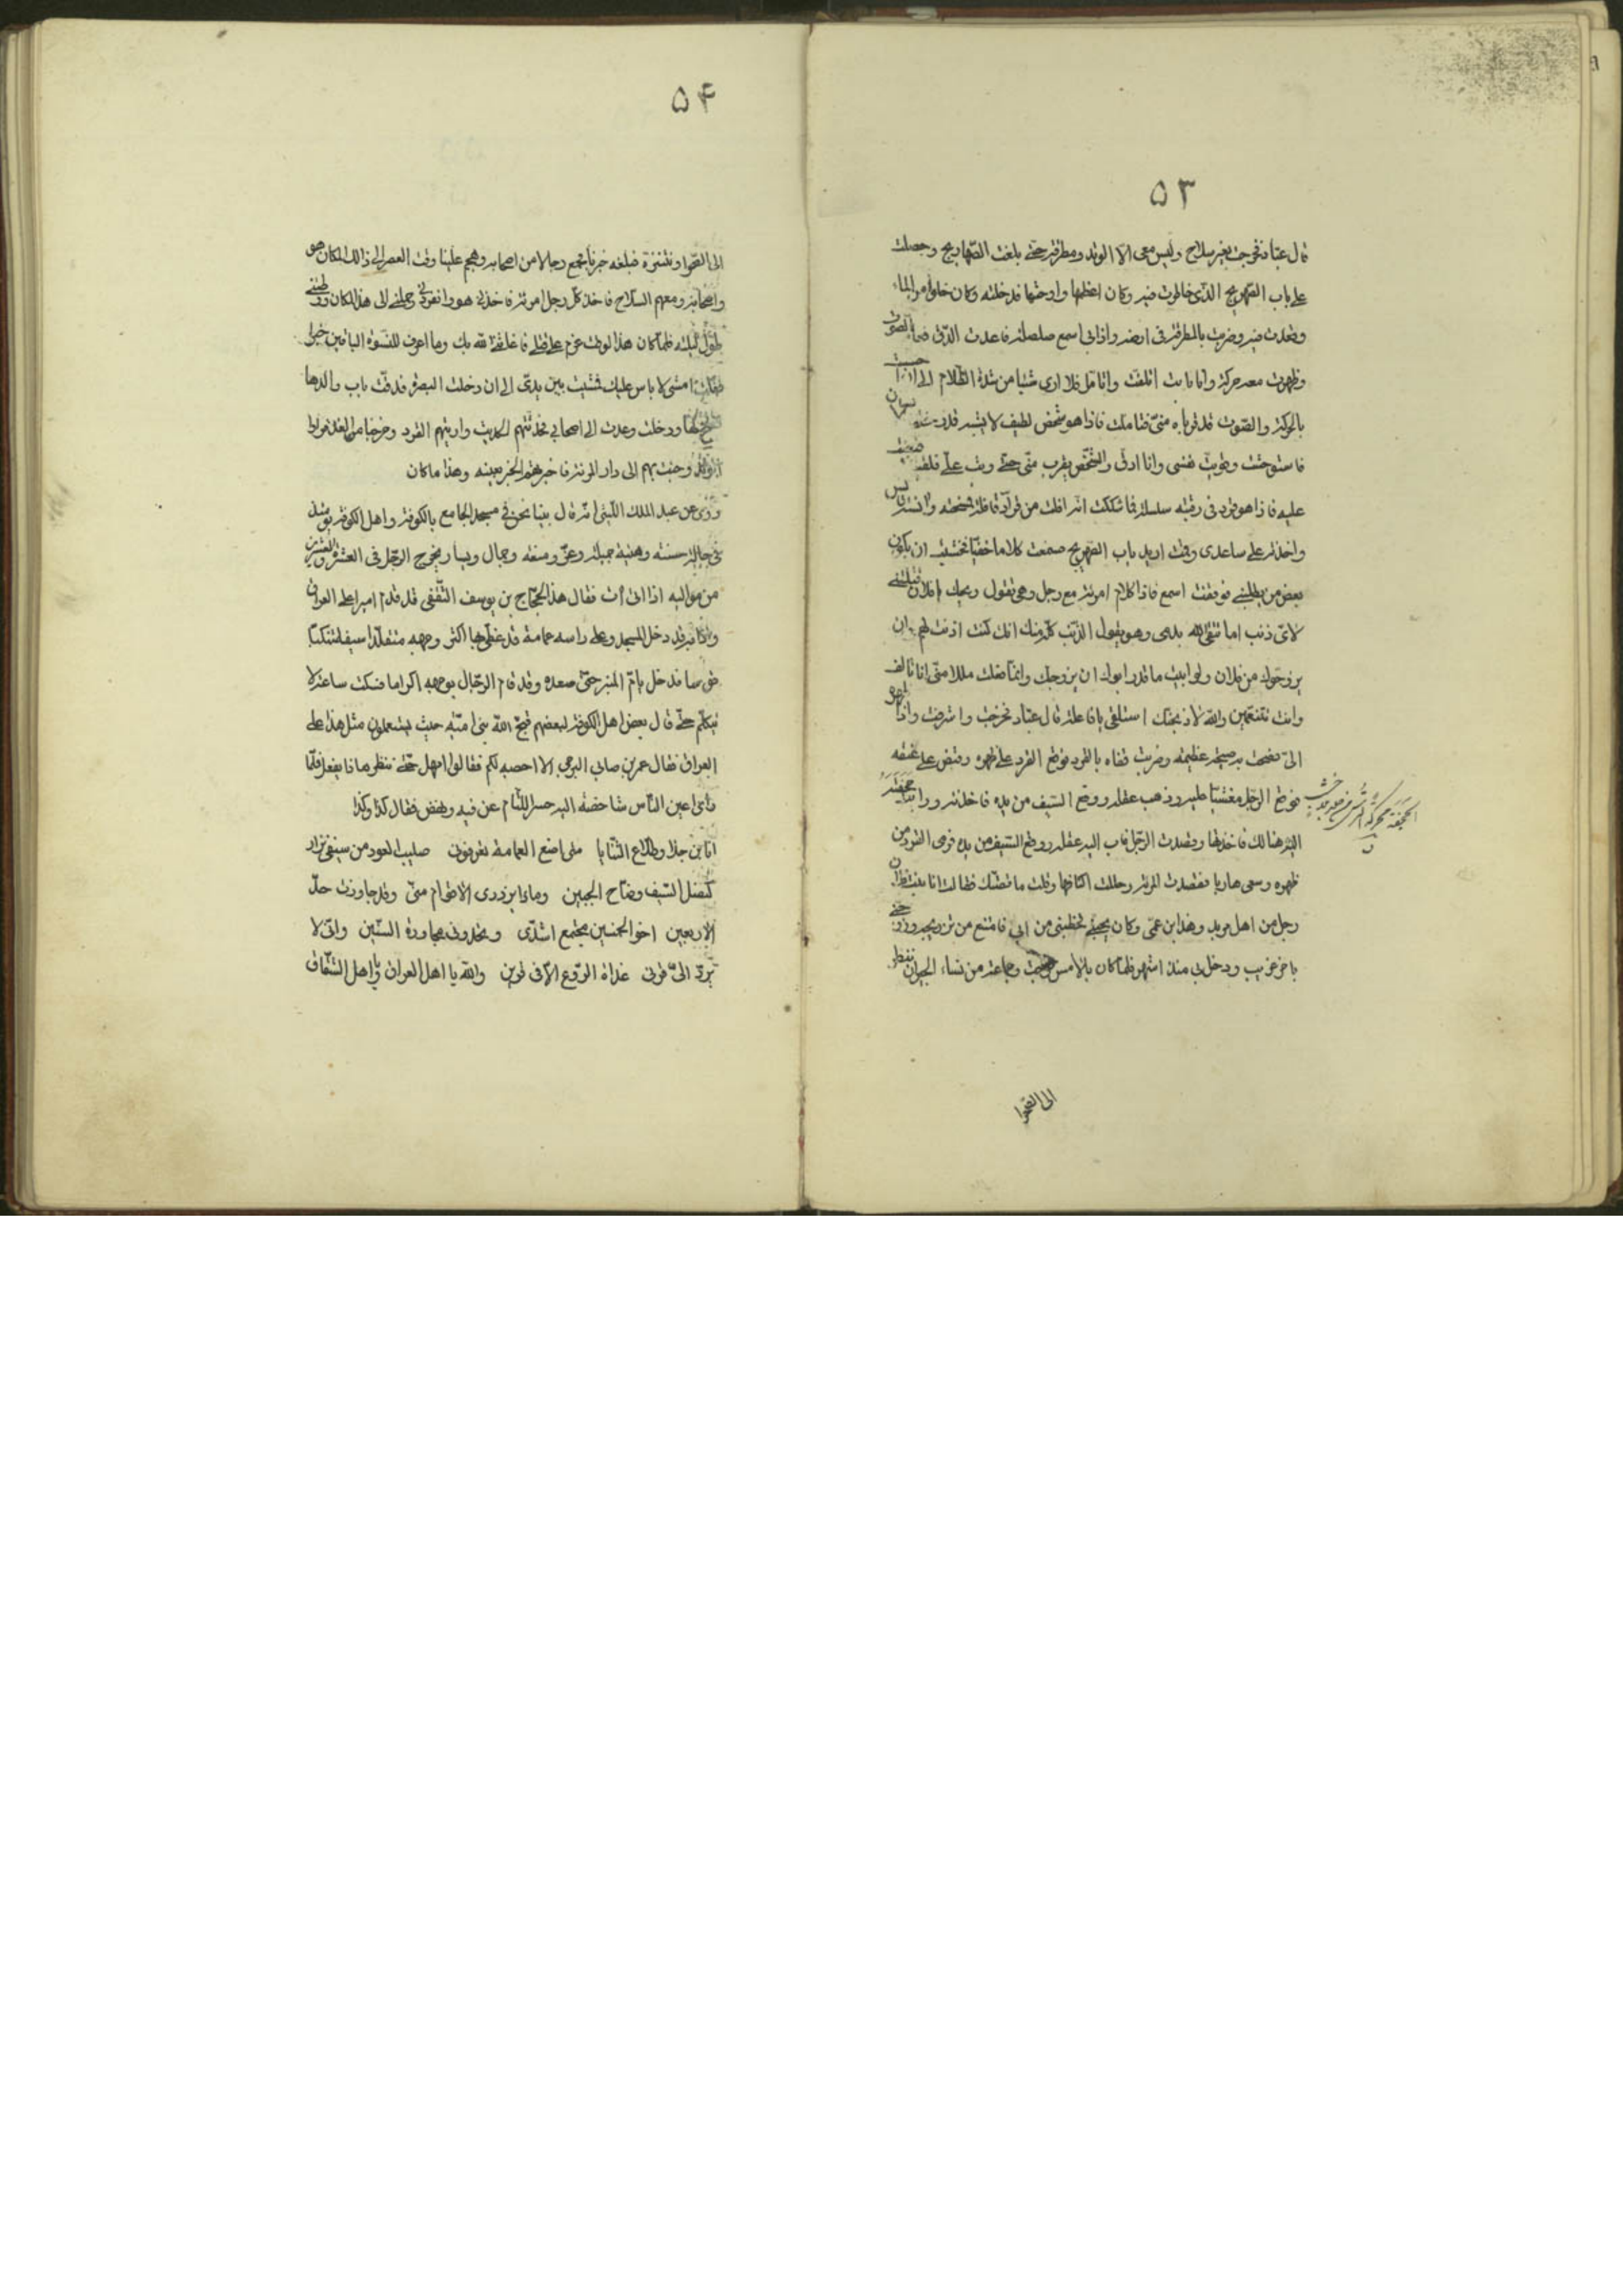 ٥٣
قال عبّاد فخرجت بغير سلاح وليس معى الّا الوتد ومطرقة حتّى بلغت الصّهاريج وحصلت
على باب الصّهريج الّذى خاطرت فيه وكان اعظمها واوحشها فدخلته وكان خلوا من الماء
وقعدت فيه وضربت بالمطرقة فى ارضه واذا بى اسمع صلصلة فاعدت الدّق فما الصّوت
وظهرت معه حركة وانا ثابت اتلفّت واتامّل فلا ارى شيئا من شدّة الظّلام الى ان احسست
بالحركة والصّوت قد قربا منّى فتاملت فاذا هو شخص لطيف لا يشبه قدر
فاستوحشت وقويت نفسى وانا ادقّ والشّخص يقرب منّى حتّى وثب علىّ فلقيه
عليه فاذا هو قرد فى رقبته سلسلة فما شككت انّه افلت من قرّاد او قافلة فمسحته وانسته
واخذته على ساعدى وقمت اريد باب الصّهريج فسمعت كلاما خفيّا فخشيت ان يكون
بعض من يطلبنى فوقفت اسمع فاذا كلام امرئة مع رجل وهى تقول ويحك يا فلان تقتلنى
لاىّ ذنب اما تتقى الله بدمى وهو يقول الذّنب كلّه منك انك كنت اذنت لهم ان
يزوّجوك من فلان ولو ابيت ما قدر ابوك ان يزوجك وانّما فعلت مللا منّى انا تالف
وانت تتنعّمين والله لاذبحنّك استلقى يا فاعلة قال عبّاد فخرجت واشرفت واذا هو
الىّ فصحت به صيحة عظيمة وضربت قفاه بالقرد فوقع القرد على ظهره وقبض على عنقه
فوقع الرّجل مغشيّا عليه وذهب عقله ووقع السّيف من يده فاخذته ورايت حجفته
الحجفة محركة الترس من جلود بلا خشب
ق
هنالك فاخذتها وقصدت الرّجل فاب اليه عقله ووقع السّيف من يده فرمى القرد من
ظهره وسعى هاربا فقصدت المرئة وحللت اكتافها وقلت ما قصّتك فقالت انا بنت فلان
رجل من اهل مريد وهذا ابن عمّى وكان يحبّنى فخطبنى من ابى فامتنع من تزويجه وزوّجنى
باخر غريب ودخل بى منذ اشهر فلمّا كان بالامس خرجت وجماعة من نساء الجيران ننظر
الى الصّحرا
٥٤
الى الصّحرا ونتنزّه فبلغه خبرنا فجمع رجالا من اصحابه وهجم علينا وقت العصر الى ذالك المكان هو
واصحابه ومعهم السّلاح فاخذ كلّ رجل امرئة فاخذنى هو وانفرد بى وحملنى الى هذا المكان
طول ليلته فلمّا كان هذا الوقت عزم على قتلى فاغاثنى الله بك وما اعرف للنّسوة الباقين خبرا
فقلت امشى لا باس عليك فمشيت بين يدىّ الى ان دخلت البصرة فدقّت باب والدها
ففتح لها ودخلت وعدت الى اصحابى فحدّثتهم الحديث واريتهم القرد وخرجنا من الغد
الوتد وجئت بهم الى دار المرئة فاخبرتهم الخبر بعينه وهذا ما كان
وروى عن عبد الملك اللّيثى انّه قال بينا نحن فى مسجد الجامع بالكوفة واهل الكوفة يومئذ
فى حالة حسنة وهيئة جميلة وعزّ ومنعة وجمال ويسار يخرج الرّجل فى العشرة والعشرين
من مواليه اذ اتى آت فقال هذا الحجّاج بن يوسف الثّقفى قد قدم اميرا على العراق
واذا به قد دخل المسجد وعلى راسه عمامة قد غطّى بها اكثر وجهه متقلّدا سيفا متنكبّا
قوسا فدخل يامّ المنبر حتّى صعده وقد قام الرّجال بوجهه اكراما فسكت ساعة لا
يتكلّم حتّى قال بعض اهل الكوفة لبعضهم قبّح الله بنى اميّة حيث يستعملون مثل هذا على
العراق فقال عمر بن صابى البرجمى الا احصبه لكم فقالوا امهل حتّى ننظر ما ذا يفعل فلمّا
راى اعين النّاس شاخصة اليه حسر اللّثام عن فيه ونهض فقال كذا وكذا
انا ابن جلا وطلّاع الثّنايا  متى اضع العمامة تعرفونى  صليب العود من سيفى نزار
كنصل السّيف وضّاح الجبين  وما ذا يزدرى الاقوام منّى  وقد جاوزت حدّ
الاربعين  اخو الخمسين مجتمع اشدّى  ونجّذونى مجاورة السّنين  وانّى لا
يردّ الىّ قرنى  غداة الرّوع الّا فى قرين  والله يا اهل العراق ويا اهل الشّقاق